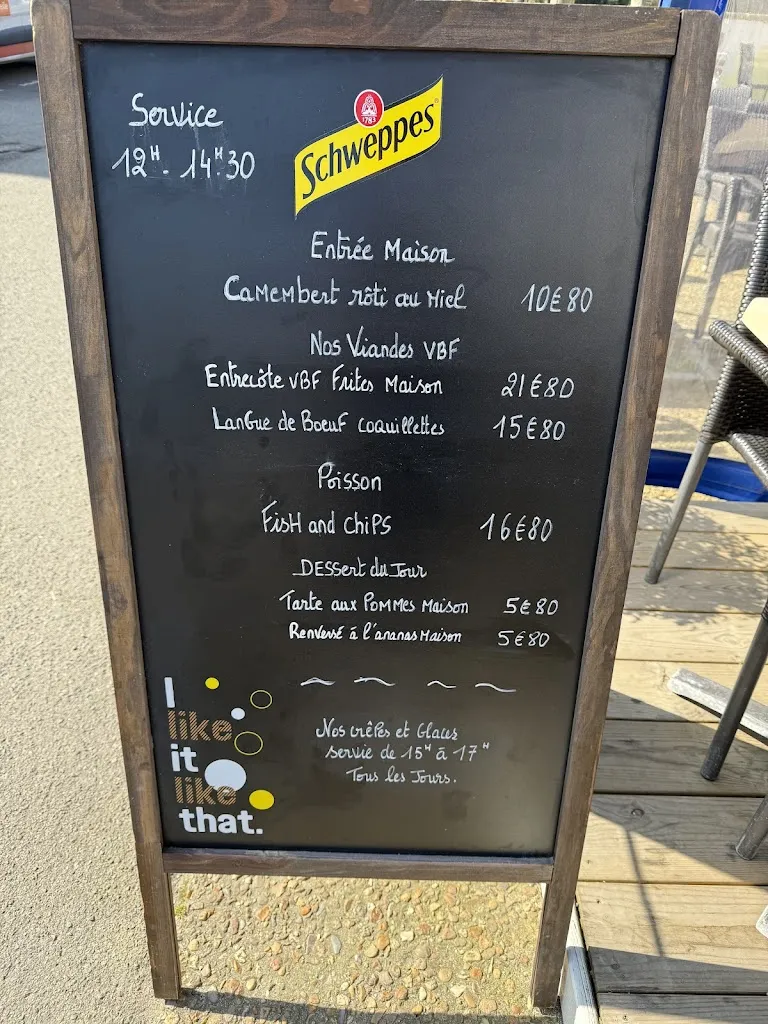 Service
12H - 14H30
1783
Schweppes
Entrée Maison
Camembert rôti au Miel 10€80
Nos Viandes VBF
Entrecôte VBF Frites Maison 21€80
Langue de Boeuf coquillettes 15€80
Poisson
Fish and Chips 16€80
Dessert du Jour
Tarte aux Pommes Maison 5€80
Renversé à l'ananas Maison 5€80
Nos crêpes et Glaces
servie de 15H à 17H
Tous les Jours.
I
like
it
like
that.